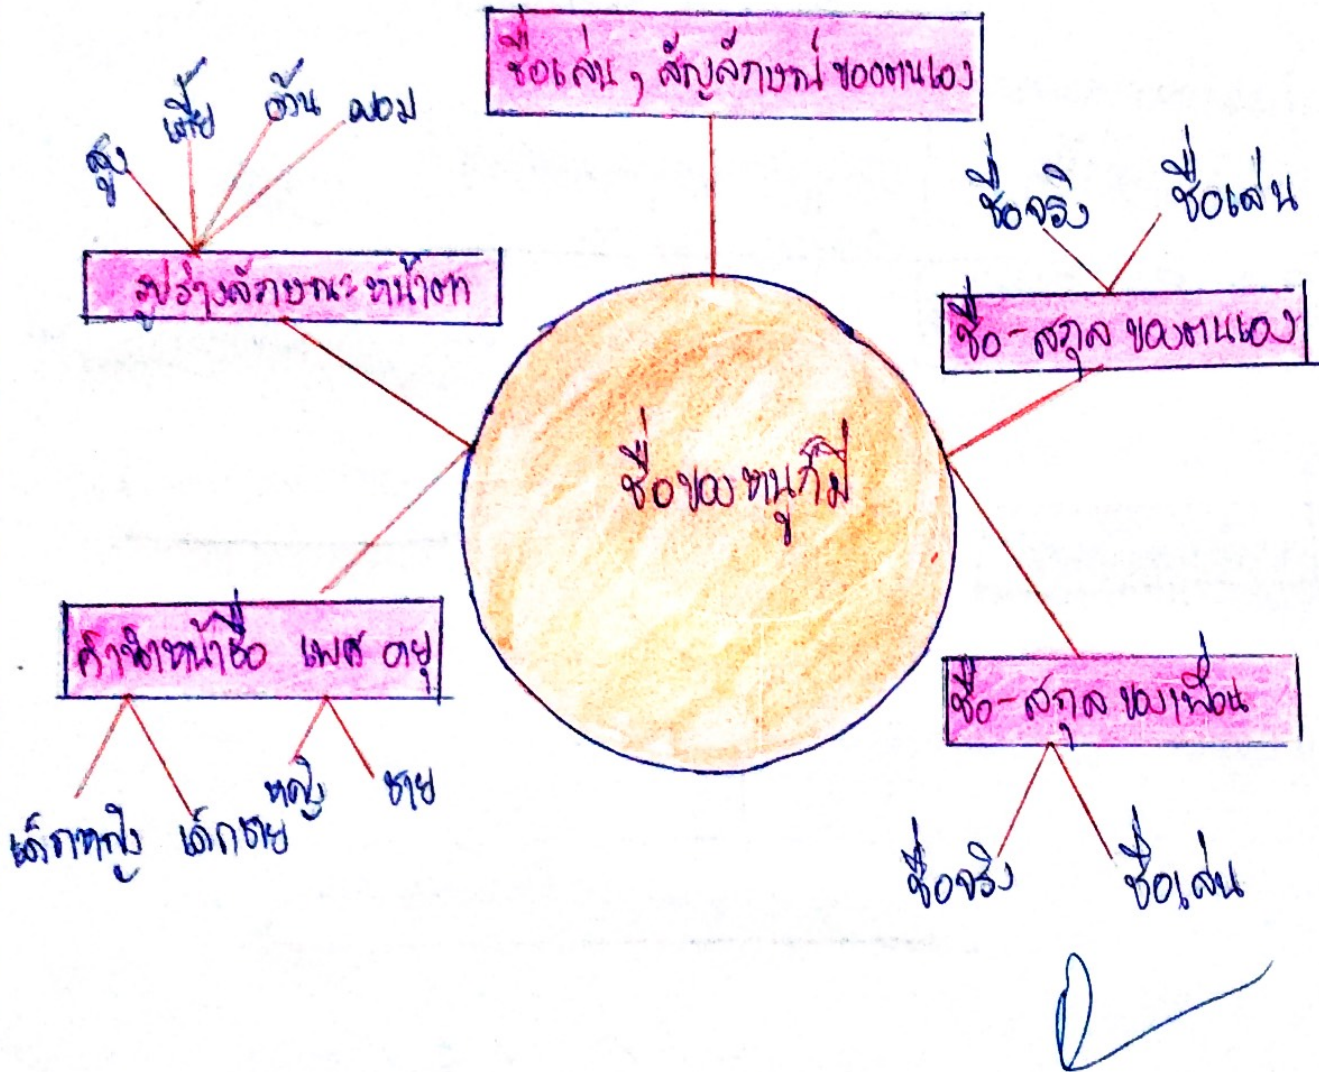 ชื่อเล่น, สัญลักษณ์ ของตนเอง
สูง เตี้ย อ้วน ผอม
รูปร่างลักษณะหน้าตา
ชื่อจริง ชื่อเล่น
ชื่อ-สกุล ของตนเอง
ชื่อของหนูก็มี
คำนำหน้าชื่อ เพศ อายุ
เด็กหญิง เด็กชาย หญิง ชาย
ชื่อ-สกุล ของเพื่อน
ชื่อจริง ชื่อเล่น